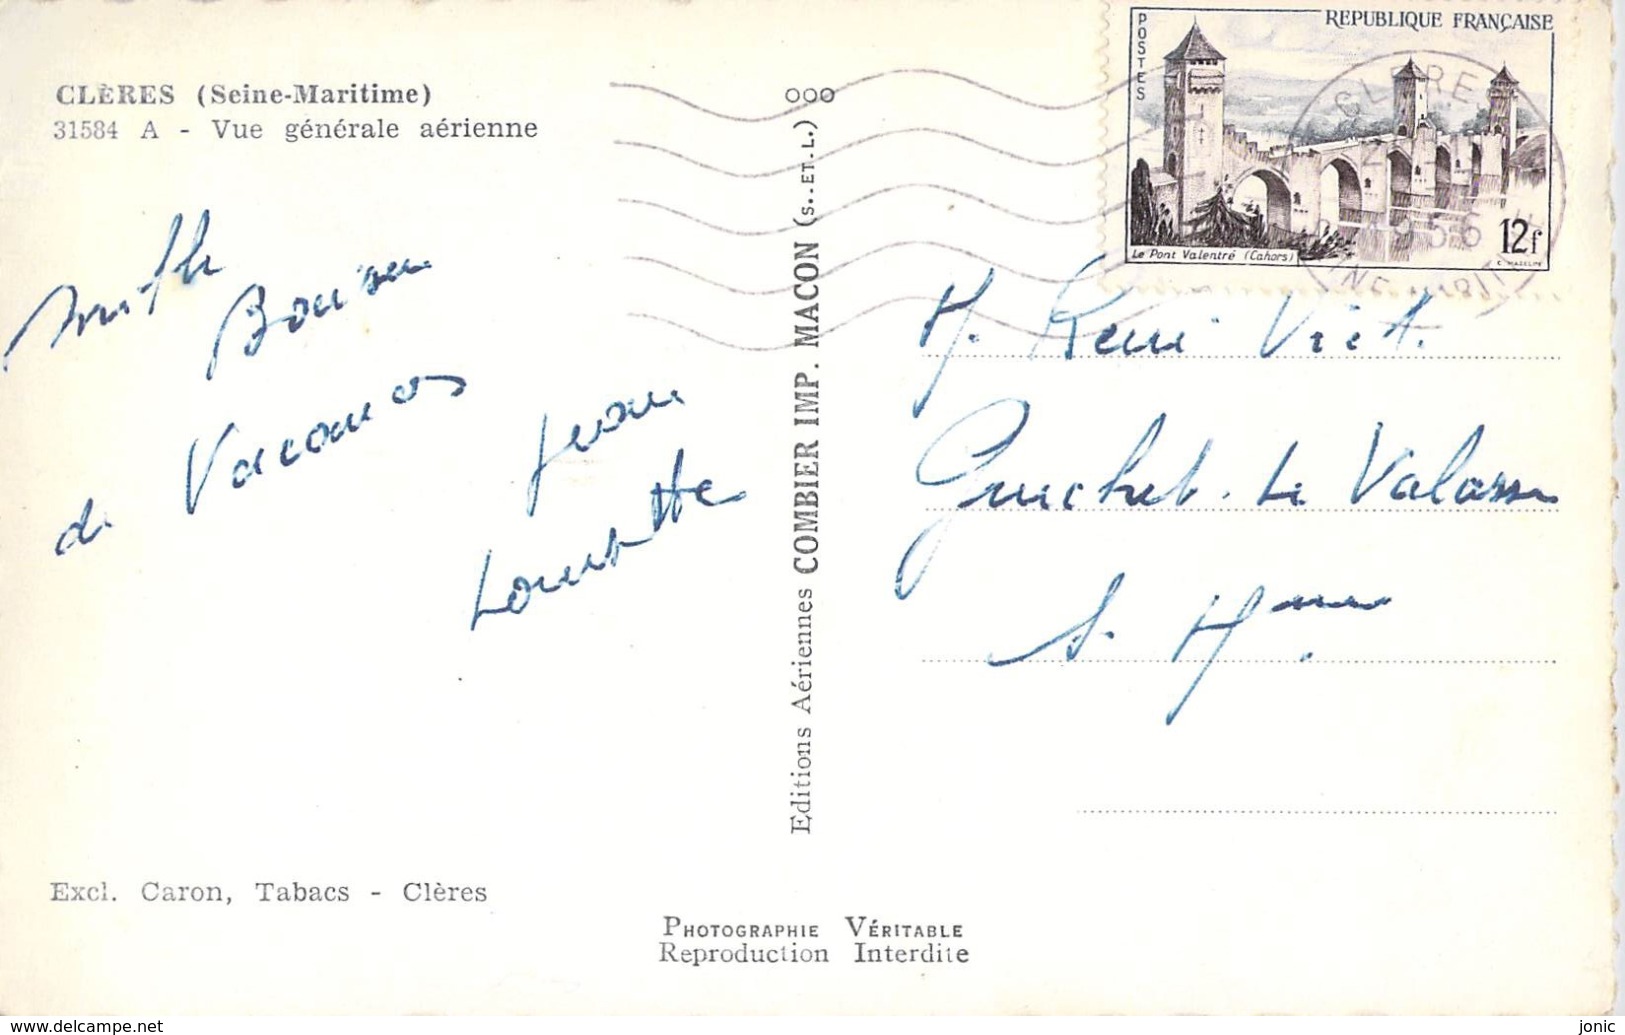 CLÈRES (Seine-Maritime)
31584 A - Vue générale aérienne
mille
Baisers
de Vacances
Jean
Louisette
Excl. Caron, Tabacs - Clères
Editions Aériennes COMBIER IMP. MACON (S.-ET-L.) OOO
PHOTOGRAPHIE VÉRITABLE
Reproduction Interdite
POSTES
REPUBLIQUE FRANÇAISE
Le Pont Valentré (Cahors)
12f
C. MAZELIN
CLERES
1956
M. René Viet.
Guichet. Le Valasse
S. Mme
www.delcampe.net
jonic